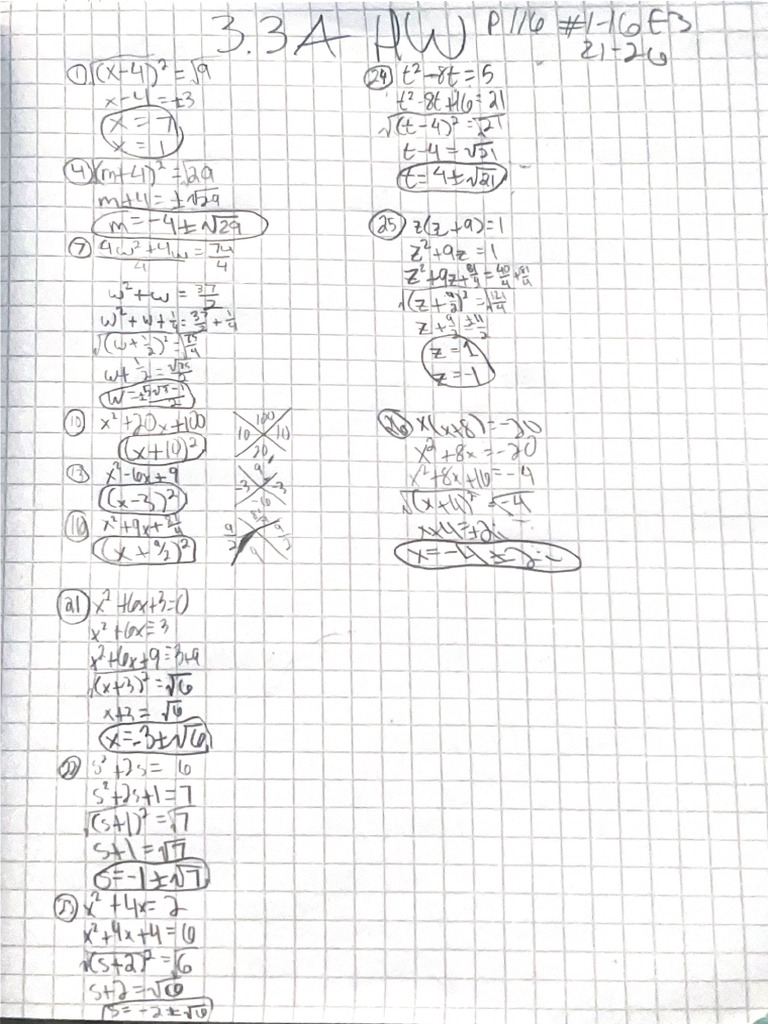 3.3A HW P116 #1-16 E3
21-26
① √(x-4)² = √9
x-4 = ±3
x = 7
x = 1
④ √(m+4)² = √29
m+4 = ±√29
m = -4 ± √29
⑦ 4w² + 4w = 74
4 4
w² + w = 37/2
w² + w + 1/4 = 37/2 + 1/4
√(w + 1/2)² = √75/4
w + 1/2 = √75/2
⑩ x² + 20x + 100
(x+10)²
100
10 10
20
⑬ x² - 6x + 9
(x-3)²
9
-3 -3
-6
⑯ x² + 9x + 81/4
(x + 9/2)²
9/2 9/2
9
㉑ x² + 6x + 3 = 0
x² + 6x = 3
x² + 6x + 9 = 3+9
√(x+3)² = √6
x+3 = √6
x = -3 ± √6
㉒ s² + 2s = 6
s² + 2s + 1 = 7
√(s+1)² = √7
s+1 = √7
s = -1 ± √7
㉓ x² + 4x = 2
x² + 4x + 4 = 6
√(s+2)² = √6
s+2 = √6
s = -2 ± √6
㉔ t² - 8t = 5
t² - 8t + 16 = 21
√(t-4)² = √21
t-4 = √21
t = 4 ± √21
㉕ z(z+9) = 1
z² + 9z = 1
z² + 9z + 81/4 = 40/4 + 81/4
√(z + 9/2)² = √121/4
z + 9/2 = ±11/2
z = 1
z = -1
㉖ x(x+8) = -20
x² + 8x = -20
x² + 8x + 16 = -4
√(x+4)² = √-4
x+4 = ±2i
x = -4 ± 2i